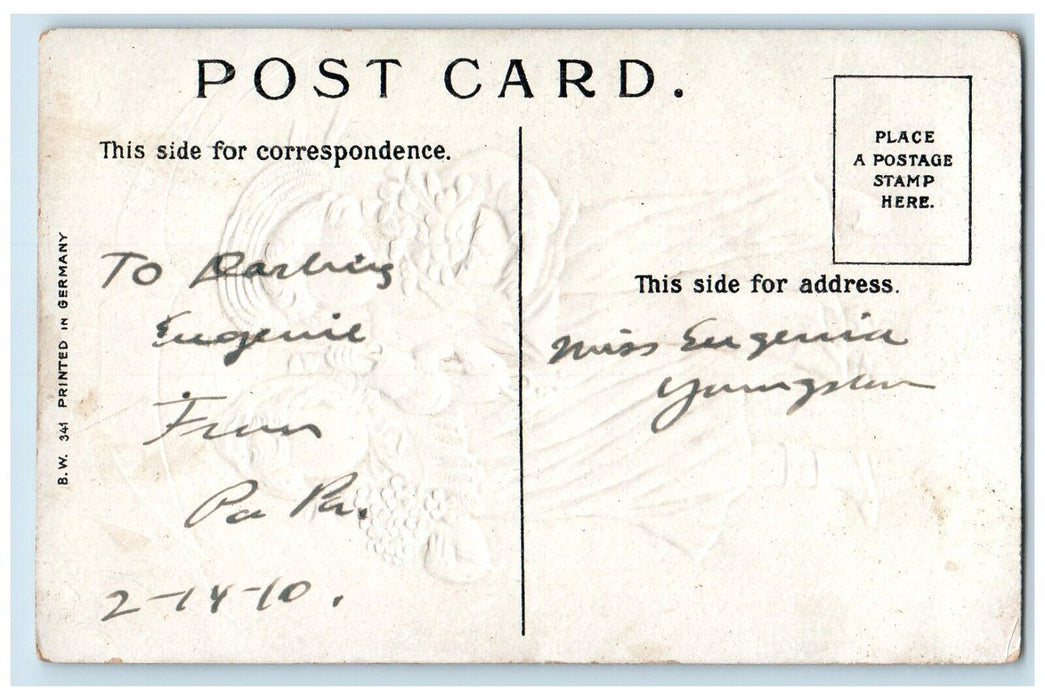 POST CARD.
This side for correspondence.
PLACE
A POSTAGE
STAMP
HERE.
This side for address.
B.W. 341 PRINTED IN GERMANY
To Darling
Eugenie
From
Pa Pa.
2-14-10.
Miss Eugenia
Youngster